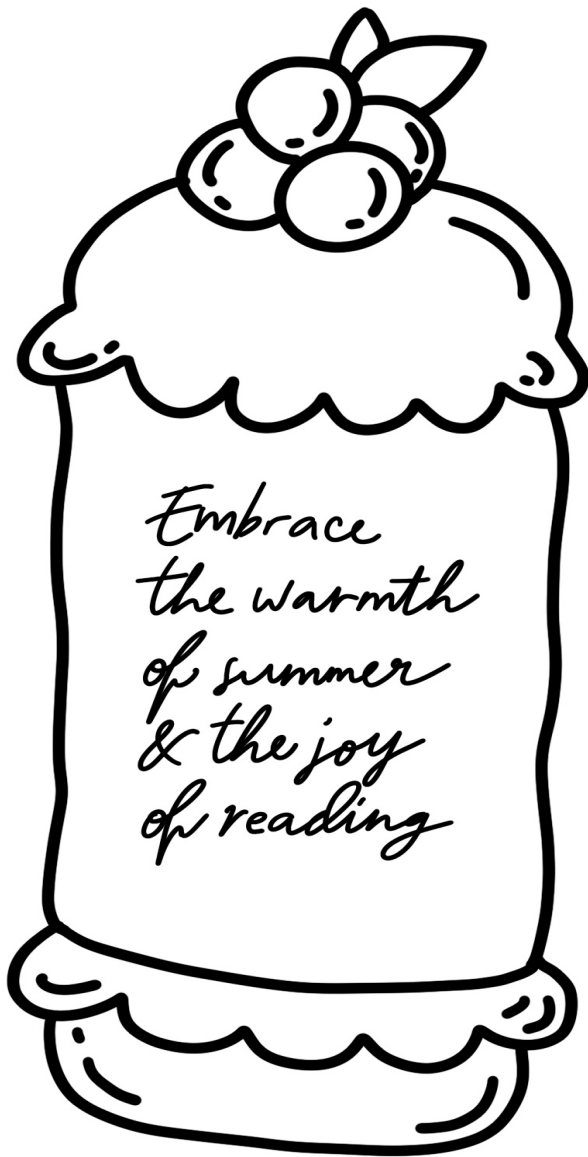 Embrace
the warmth
of summer
& the joy
of reading